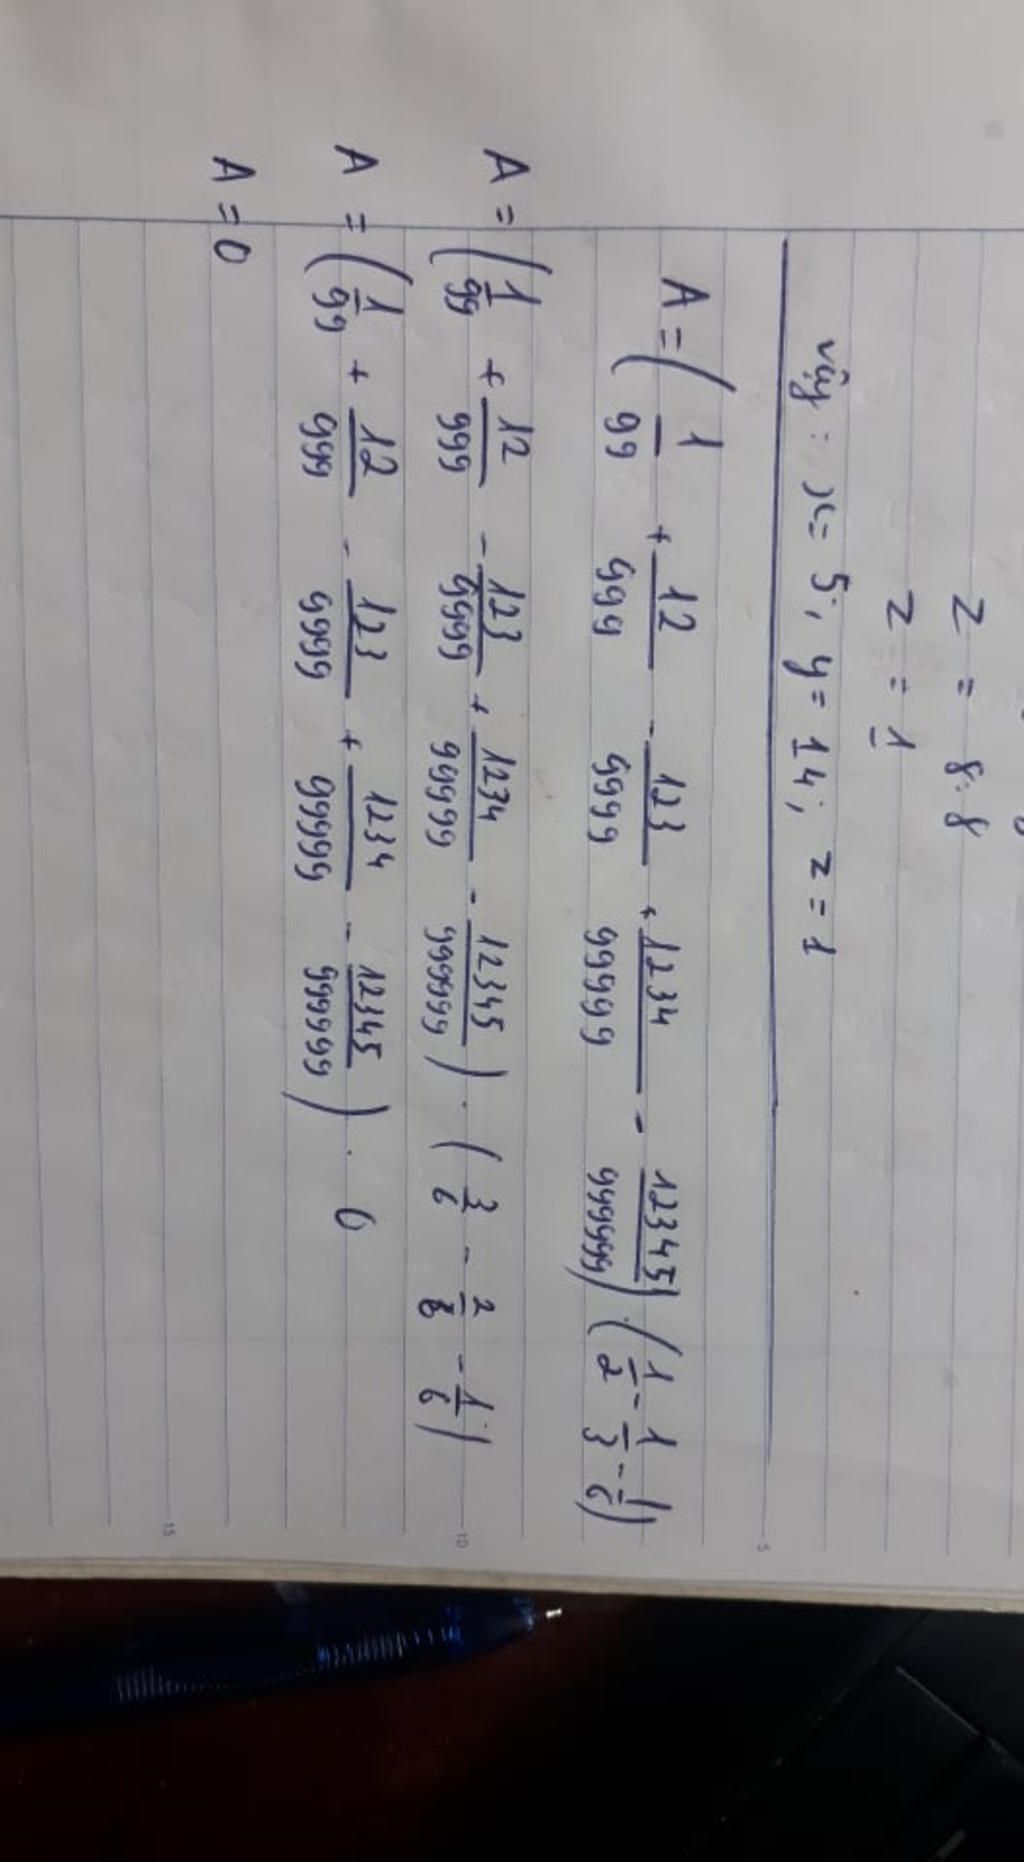 z = 8:8
z = 1
vậy : x = 5; y = 14; z = 1
A = (1/99 + 12/999 - 123/9999 + 1234/99999 - 12345/999999) · (1/2 - 1/3 - 1/6)
A = (1/99 + 12/999 - 123/9999 + 1234/99999 - 12345/999999) · (3/6 - 2/6 - 1/6)
A = (1/99 + 12/999 - 123/9999 + 1234/99999 - 12345/999999) · 0
A = 0
5
10
15